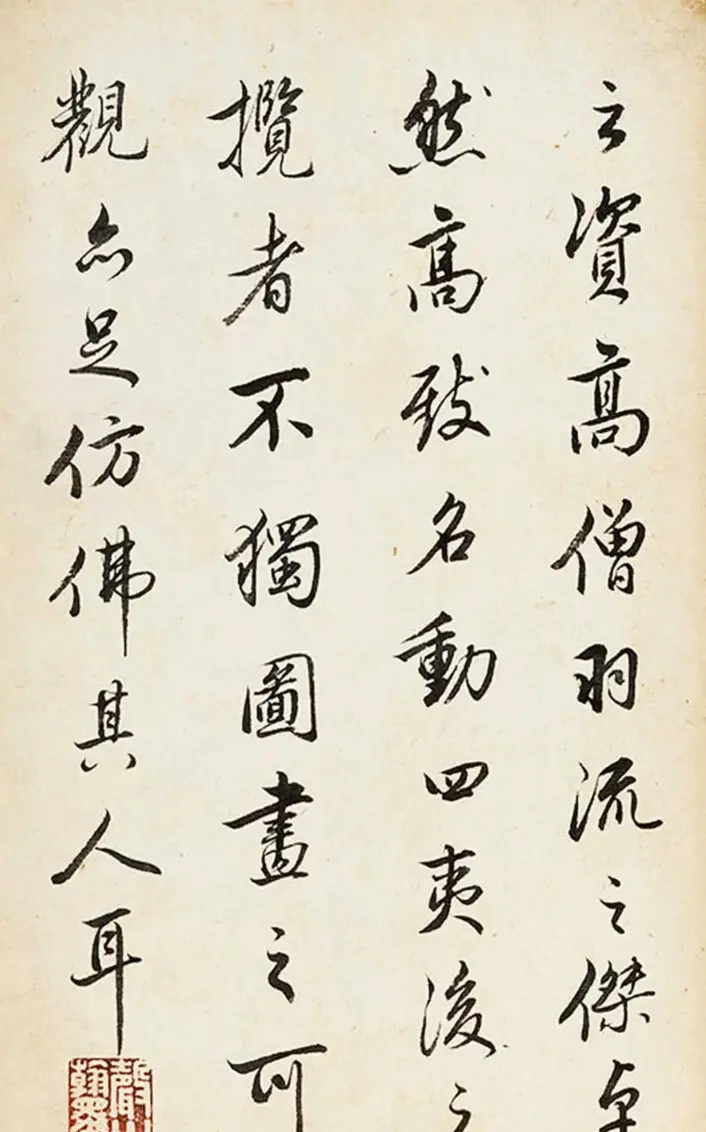 之資高僧羽流之傑卓
然高致名動四夷後之
攬者不獨圖畫之可
觀亦足仿佛其人耳